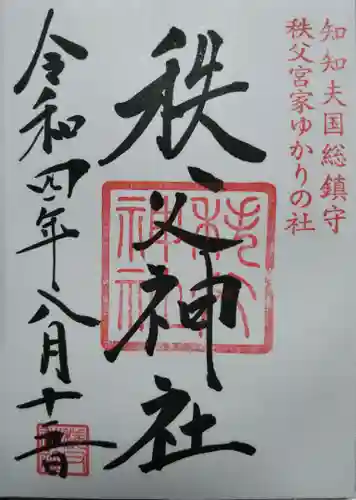 知知夫国総鎮守
秩父宮家ゆかりの社
秩父神社
秩父
神社
令和四年八月十 日